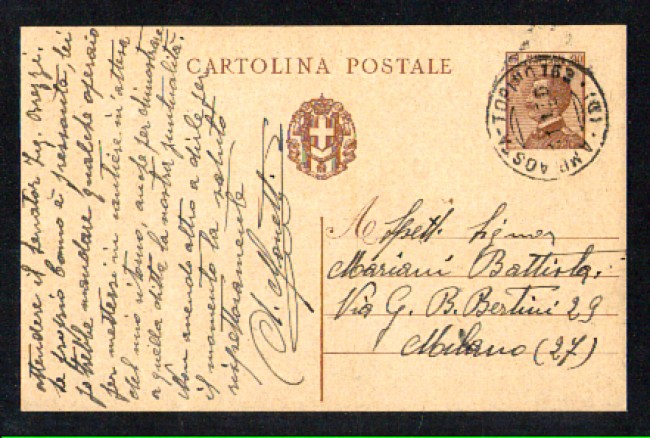 CARTOLINA POSTALE
AMB. AOSTA - TORINO 163 ·
attendere il Senator Ing. Brezzi.
Se proprio Comò è pressante, lei
potrebbe mandare qualche operaio
per mettersi in cantiere in attesa
del mio ritorno, anche per dimostrare
a quella ditta la nostra puntualità.
Non avendo altro a dirle per
il momento la saluto
rispettosamente
Spett. Signor
Mariani Battista.
Via G. B. Bertini 29
Milano (27)